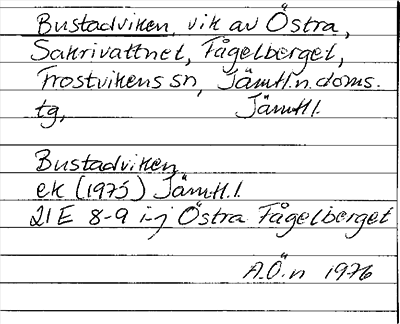 Bustadviken, vik av Östra,
Sakrivattnet, Fågelberget,
Frostvikens sn, Jämtl.n.doms.
tg, Jämtl.
Bustadviken
ek (1975) Jämtl.l.
21E 8-9 i-j Östra Fågelberget
A.Ö.n 1976